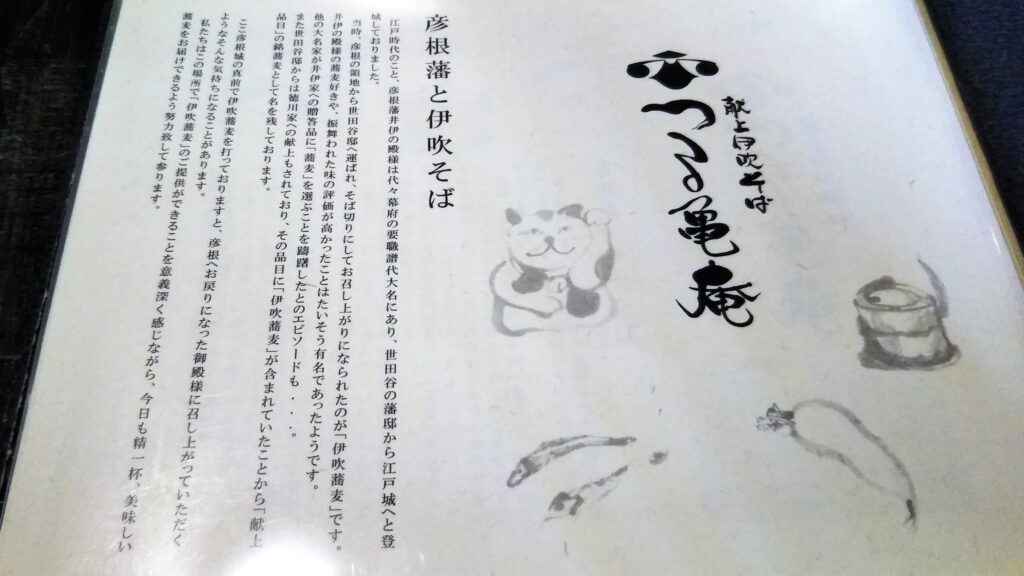 献上伊吹そば
つる亀庵
彦根藩と伊吹そば
江戸時代のこと、彦根藩井伊の殿様は代々幕府の要職譜代大名にあり、世田谷の藩邸から江戸城へと登
城しておりました。
当時、彦根の領地から世田谷邸へ運ばれ、そば切りにしてお召し上がりになられたのが「伊吹蕎麦」です。
井伊の殿様の蕎麦好きや、振舞われた味の評価が高かったことはたいそう有名であったようです。
他の大名家が井伊家への贈答品に「蕎麦」を選ぶことを躊躇したとのエピソードも・・・。
また世田谷邸からは徳川家への献上もされており、その品目に「伊吹蕎麦」が含まれていたことから「献上
品目」の銘蕎麦として名を残しております。
ここ彦根城の真前で伊吹蕎麦を打っておりますと、彦根へお戻りになった御殿様に召し上がっていただく
ようなそんな気持ちになることがあります。
私たちはこの場所で「伊吹蕎麦」のご提供ができることを意義深く感じながら、今日も精一杯、美味しい
蕎麦をお届けできるよう努力致して参ります。